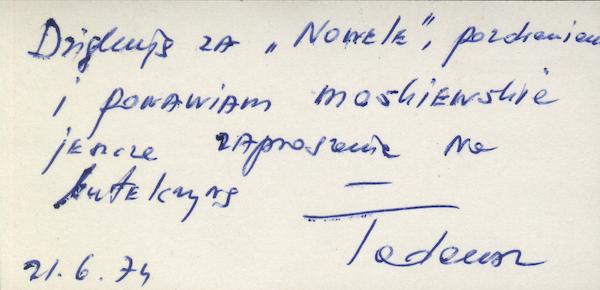 Dziękuję za „Nowele”, pozdrawiam
i ponawiam moskiewskie
jeszcze zaproszenie na
21.6.74
Tadeusz